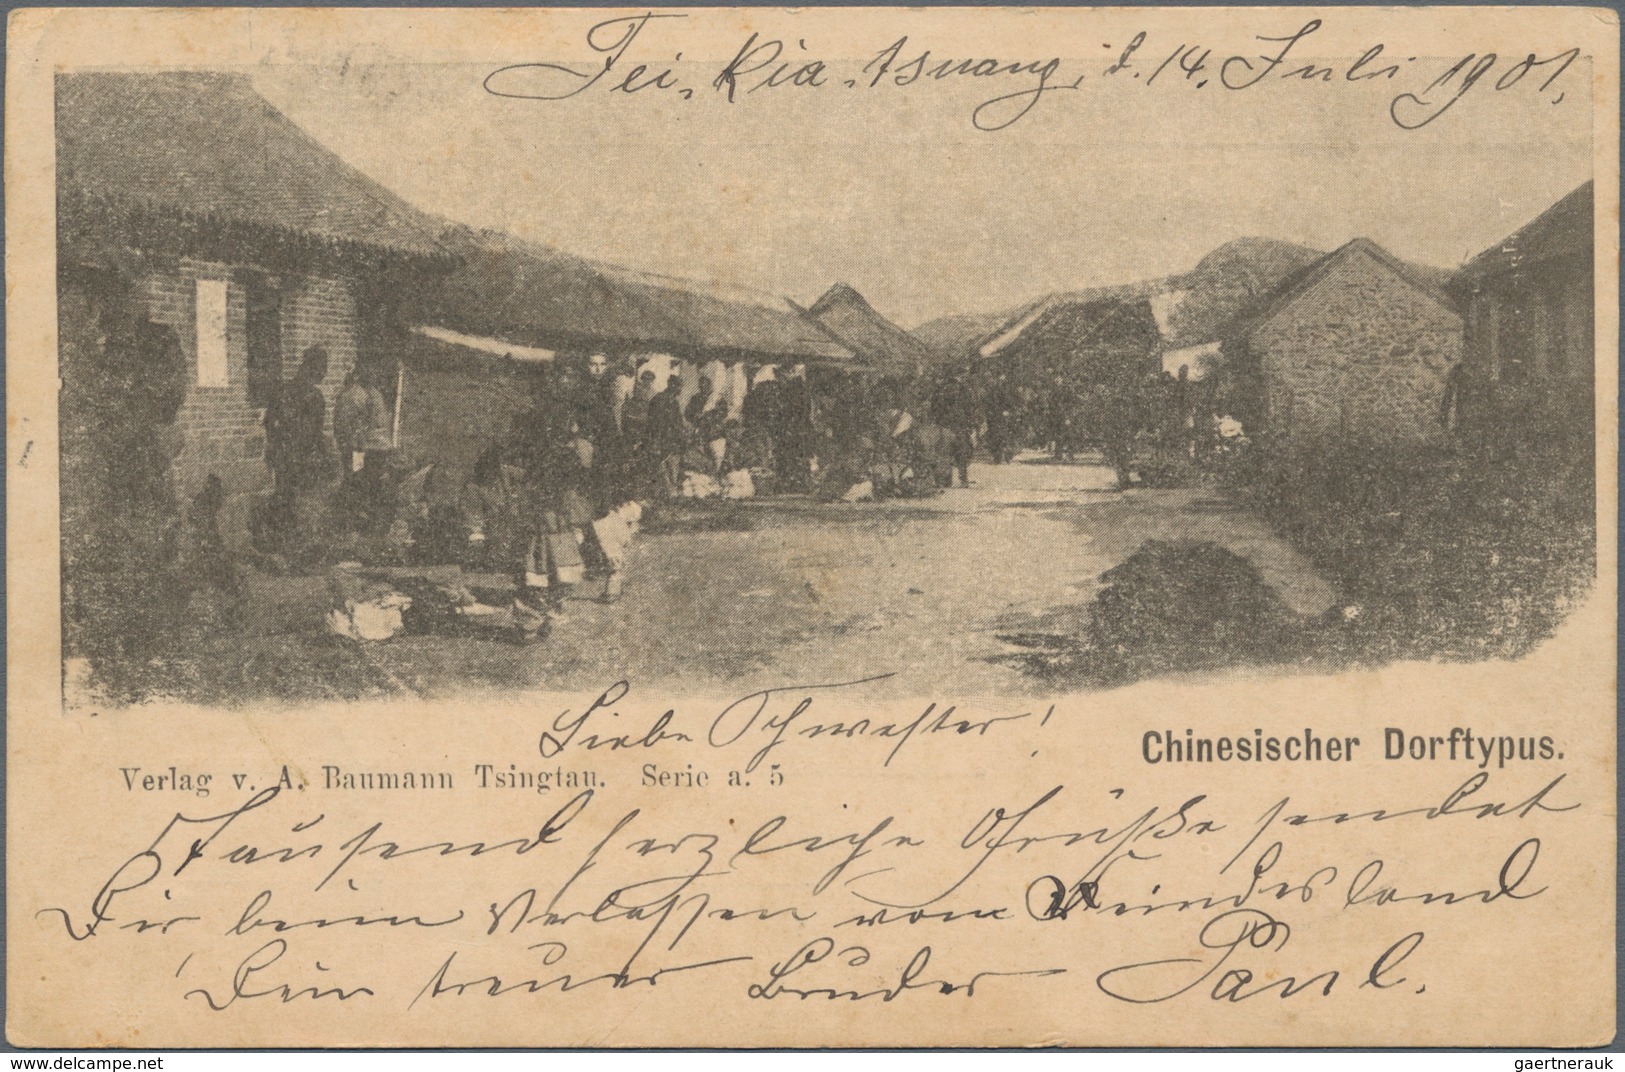 Fei-Kia-tsuang, d. 14. Juli 1901.
Liebe Schwester!
Chinesischer Dorftypus.
Verlag v. A. Baumann Tsingtau. Serie a. 5
Tausend herzliche Grüße sendet
Dir beim Verlassen vom Feindesland
Dein treuer Bruder Paul.
www.stampcircuit.com
gaertnerauk